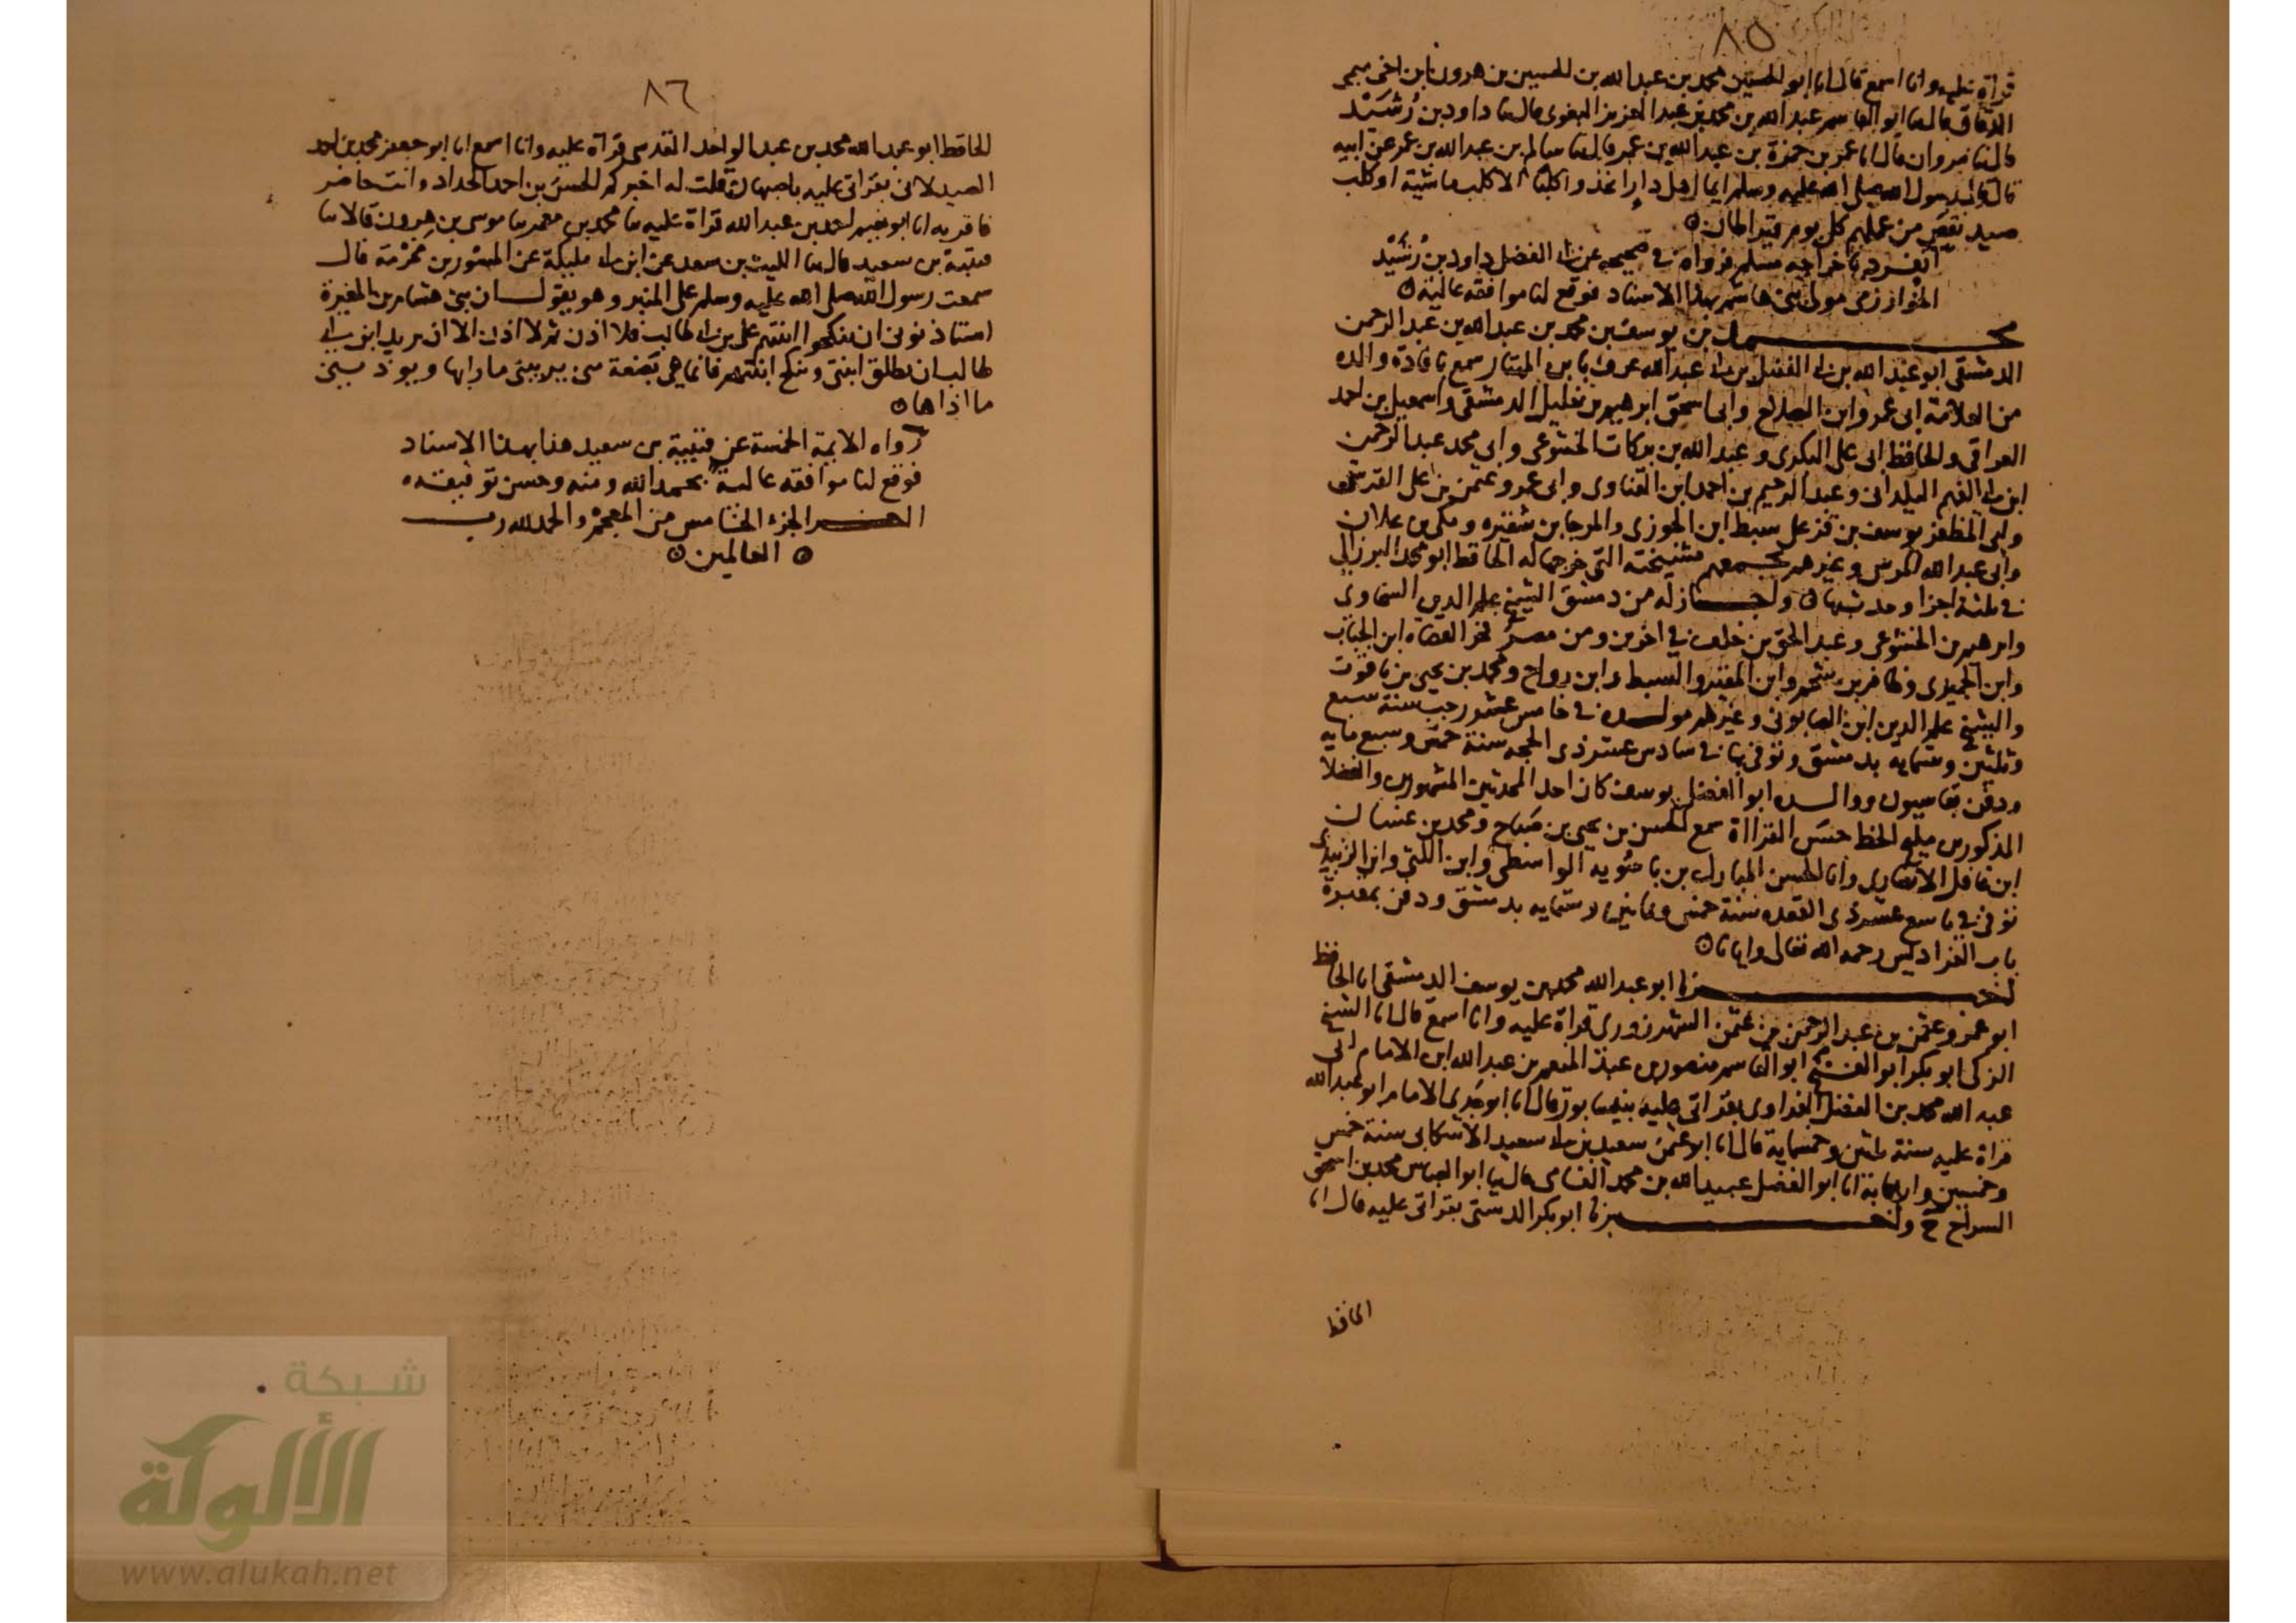 ٨٥
قراة عليه وانا اسمع قال انا ابو الحسين محمد بن عبد الله بن الحسين بن هرون ابن اخي ميمي
الدقاق قال ثنا ابو القاسم عبد الله بن محمد بن عبد العزيز البغوي قال ثنا داود بن رُشَيْد
قال ثنا مروان قال انا عمر بن حمزة بن عبد الله بن عمر قال ثنا سالم بن عبد الله بن عمر عن ابيه
قال قال رسول الله صلى الله عليه وسلم ايما اهل دار اتخذوا كلبا الا كلب ماشية او كلب
صيد نقص من عملهم كل يوم قيراطان
انفرد باخراجه مسلم فرواه في صحيحه عن ابي الفضل داود بن رُشَيْد
الخوارزمي مولى بني هاشم بهذا الاسناد فوقع لنا موافقه عالية
محمد بن يوسف بن محمد بن عبد الله بن عبد الرحمن
الدمشقي ابو عبد الله بن ابي الفضل بن ابي عبد الله عرف بابن المهتار سمع بافادة والده
من العلامة ابي عمرو ابن الصلاح وابي اسحق ابرهيم بن خليل الدمشقي واسمعيل بن احمد
العراقي والحافظ ابي علي البكري وعبد الله بن بركات الخشوعي وابي محمد عبد الرحمن
ابن ابي الفهم اليلداني وعبد الرحيم بن احمد ابن القناوي وابي عمرو عثمن بن علي القرشي
وابي المظفر يوسف بن قز علي سبط ابن الجوزي والمرجا بن شقيره ومكي بن علان
وابي عبد الله المرسي وغيرهم يجمعهم مشيخته التي خرجها له الحافظ ابو محمد البرزالي
في ثلثة اجزا وحدث بها واجاز له من دمشق الشيخ علم الدين السخاوي
وابرهيم بن الخشوعي وعبد الحق بن خلف في اخرين ومن مصر فخر القضاه ابن الجباب
وابن الجميزي وظافر بن شحم وابن المقير والسبط وابن رواج ومحمد بن يحيى بن ياقوت
والشيخ علم الدين ابن الصابوني وغيرهم مولده في خامس عشر رجب سنة سبع
وثلثين وستمايه بدمشق وتوفي بها في سادس عشر ذي الحجه سنة خمس وسبع مايه
ودفن بقاسيون ووالده ابو الفضل يوسف كان احد المحدثين المشهورين والفضلا
المذكورين مليح الخط حسن القرااة سمع الحسن بن يحيى بن صباح ومحمد بن غسان
ابن غافل الانصاري وابا الحسن المبارك بن باسُويه الواسطي وابن اللتي وابن الزبيدي
توفي في تاسع عشر ذي القعده سنة خمس وثمانين وستمايه بدمشق ودفن بمقبرة
باب الفراديس رحمه الله تعالى وايانا
اخبرنا ابو عبد الله محمد بن يوسف الدمشقي انا الحافظ
ابو عمرو عثمن بن عبد الرحمن بن عثمن الشهرزوري قراة عليه وانا اسمع قال انا الشيخ
الزكي ابو بكر ابو الفتح ابو القاسم منصور بن عبد المنعم بن عبد الله ابن الامام ابي
عبد الله محمد بن الفضل الفراوي بقراتي عليه بنيسابور قال انا ابو جدي الامام ابو عبد الله
قراة عليه سنة ثلثين وخمسماية قال انا ابو عثمن سعيد بن ابي سعيد الاشكابي سنة خمس
وخمسين واربعماية انا ابو الفضل عبيد الله بن محمد الفامي قال ثنا ابو العباس محمد بن اسحق
السراج ح واخبرنا ابو بكر الدشتي بقراتي عليه قال انا
الحافظ
٨٦
الحافظ ابو عبد الله محمد بن عبد الواحد المقدسي قراة عليه وانا اسمع انا ابو جعفر محمد بن احمد
الصيدلاني بقراتي عليه باصبهان قلت له اخبركم الحسن بن احمد الحداد وانت حاضر
فاقر به انا ابو نعيم احمد بن عبد الله قراة عليه ثنا محمد بن معمر ثنا موسى بن هرون قالا ثنا
قتيبة بن سعيد قال ثنا الليث بن سعد عن ابن ابي مليكة عن المِسْور بن مَخْرَمَة قال
سمعت رسول الله صلى الله عليه وسلم على المنبر وهو يقول ان بني هشام بن المغيرة
استاذنوني ان ينكحوا ابنتهم علي بن ابي طالب فلا اذن ثم لا اذن الا ان يريد ابن ابي
طالب ان يطلق ابنتي وينكح ابنتهم فانما هي بَضعة مني يريبني ما رابها ويوذيني
ما اذاها
رواه الايمة الخمسة عن قتيبة بن سعيد هذا بهذا الاسناد
فوقع لنا موافقه عالية بحمد الله ومنه وحسن توفيقه
اخر الجزء الخامس من المعجم والحمد لله رب
العالمين
شبكة
الألوكة
www.alukah.net